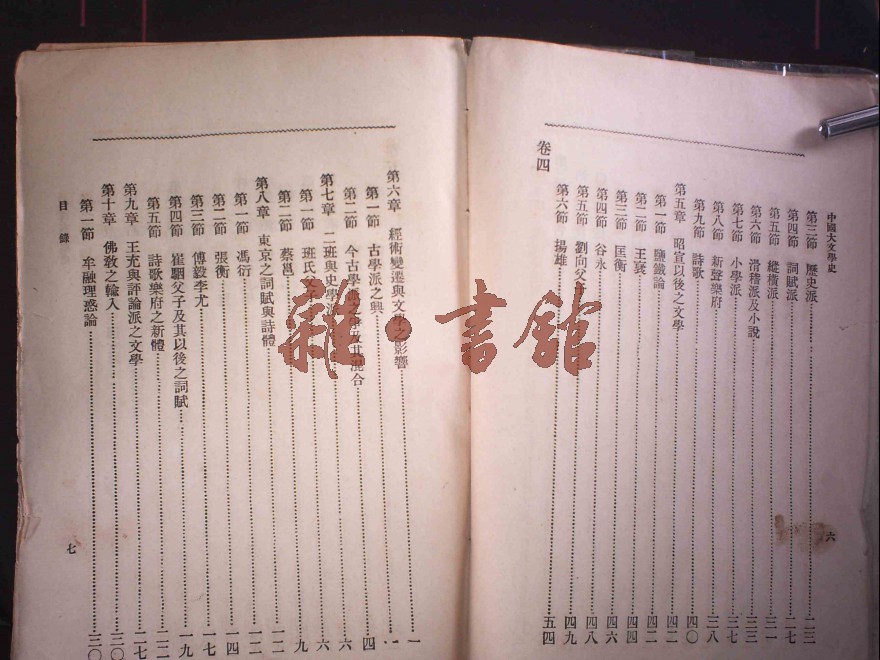 中國大文學史
六
第三節 歷史派 二三
第四節 詞賦派 二七
第五節 縱橫派 三一
第六節 滑稽派及小說 三三
第七節 小學派 三七
第八節 新聲樂府 三八
第九節 詩歌 四〇
第五章 昭宣以後之文學 四二
第一節 鹽鐵論 四二
第二節 王褒 四四
第三節 匡衡 四六
第四節 谷永 四八
第五節 劉向父子 四九
第六節 揚雄 五四
卷四
第六章 經術變遷與文學之影響 一
第一節 古學派之興 一
第二節 今古學派之爭及其混合 四
第七章 二班與史學派 六
第一節 班氏父子 六
第二節 蔡邕 九
第八章 東京之詞賦與詩體 一二
第一節 馮衍 一二
第二節 張衡 一四
第三節 傅毅李尤 一七
第四節 崔駰父子及其以後之詞賦 一九
第五節 詩歌樂府之新體 二二
第九章 王充與評論派之文學 二七
第十章 佛教之輸入 三〇
第一節 牟融理惑論 三〇
目錄
七
雜·書館